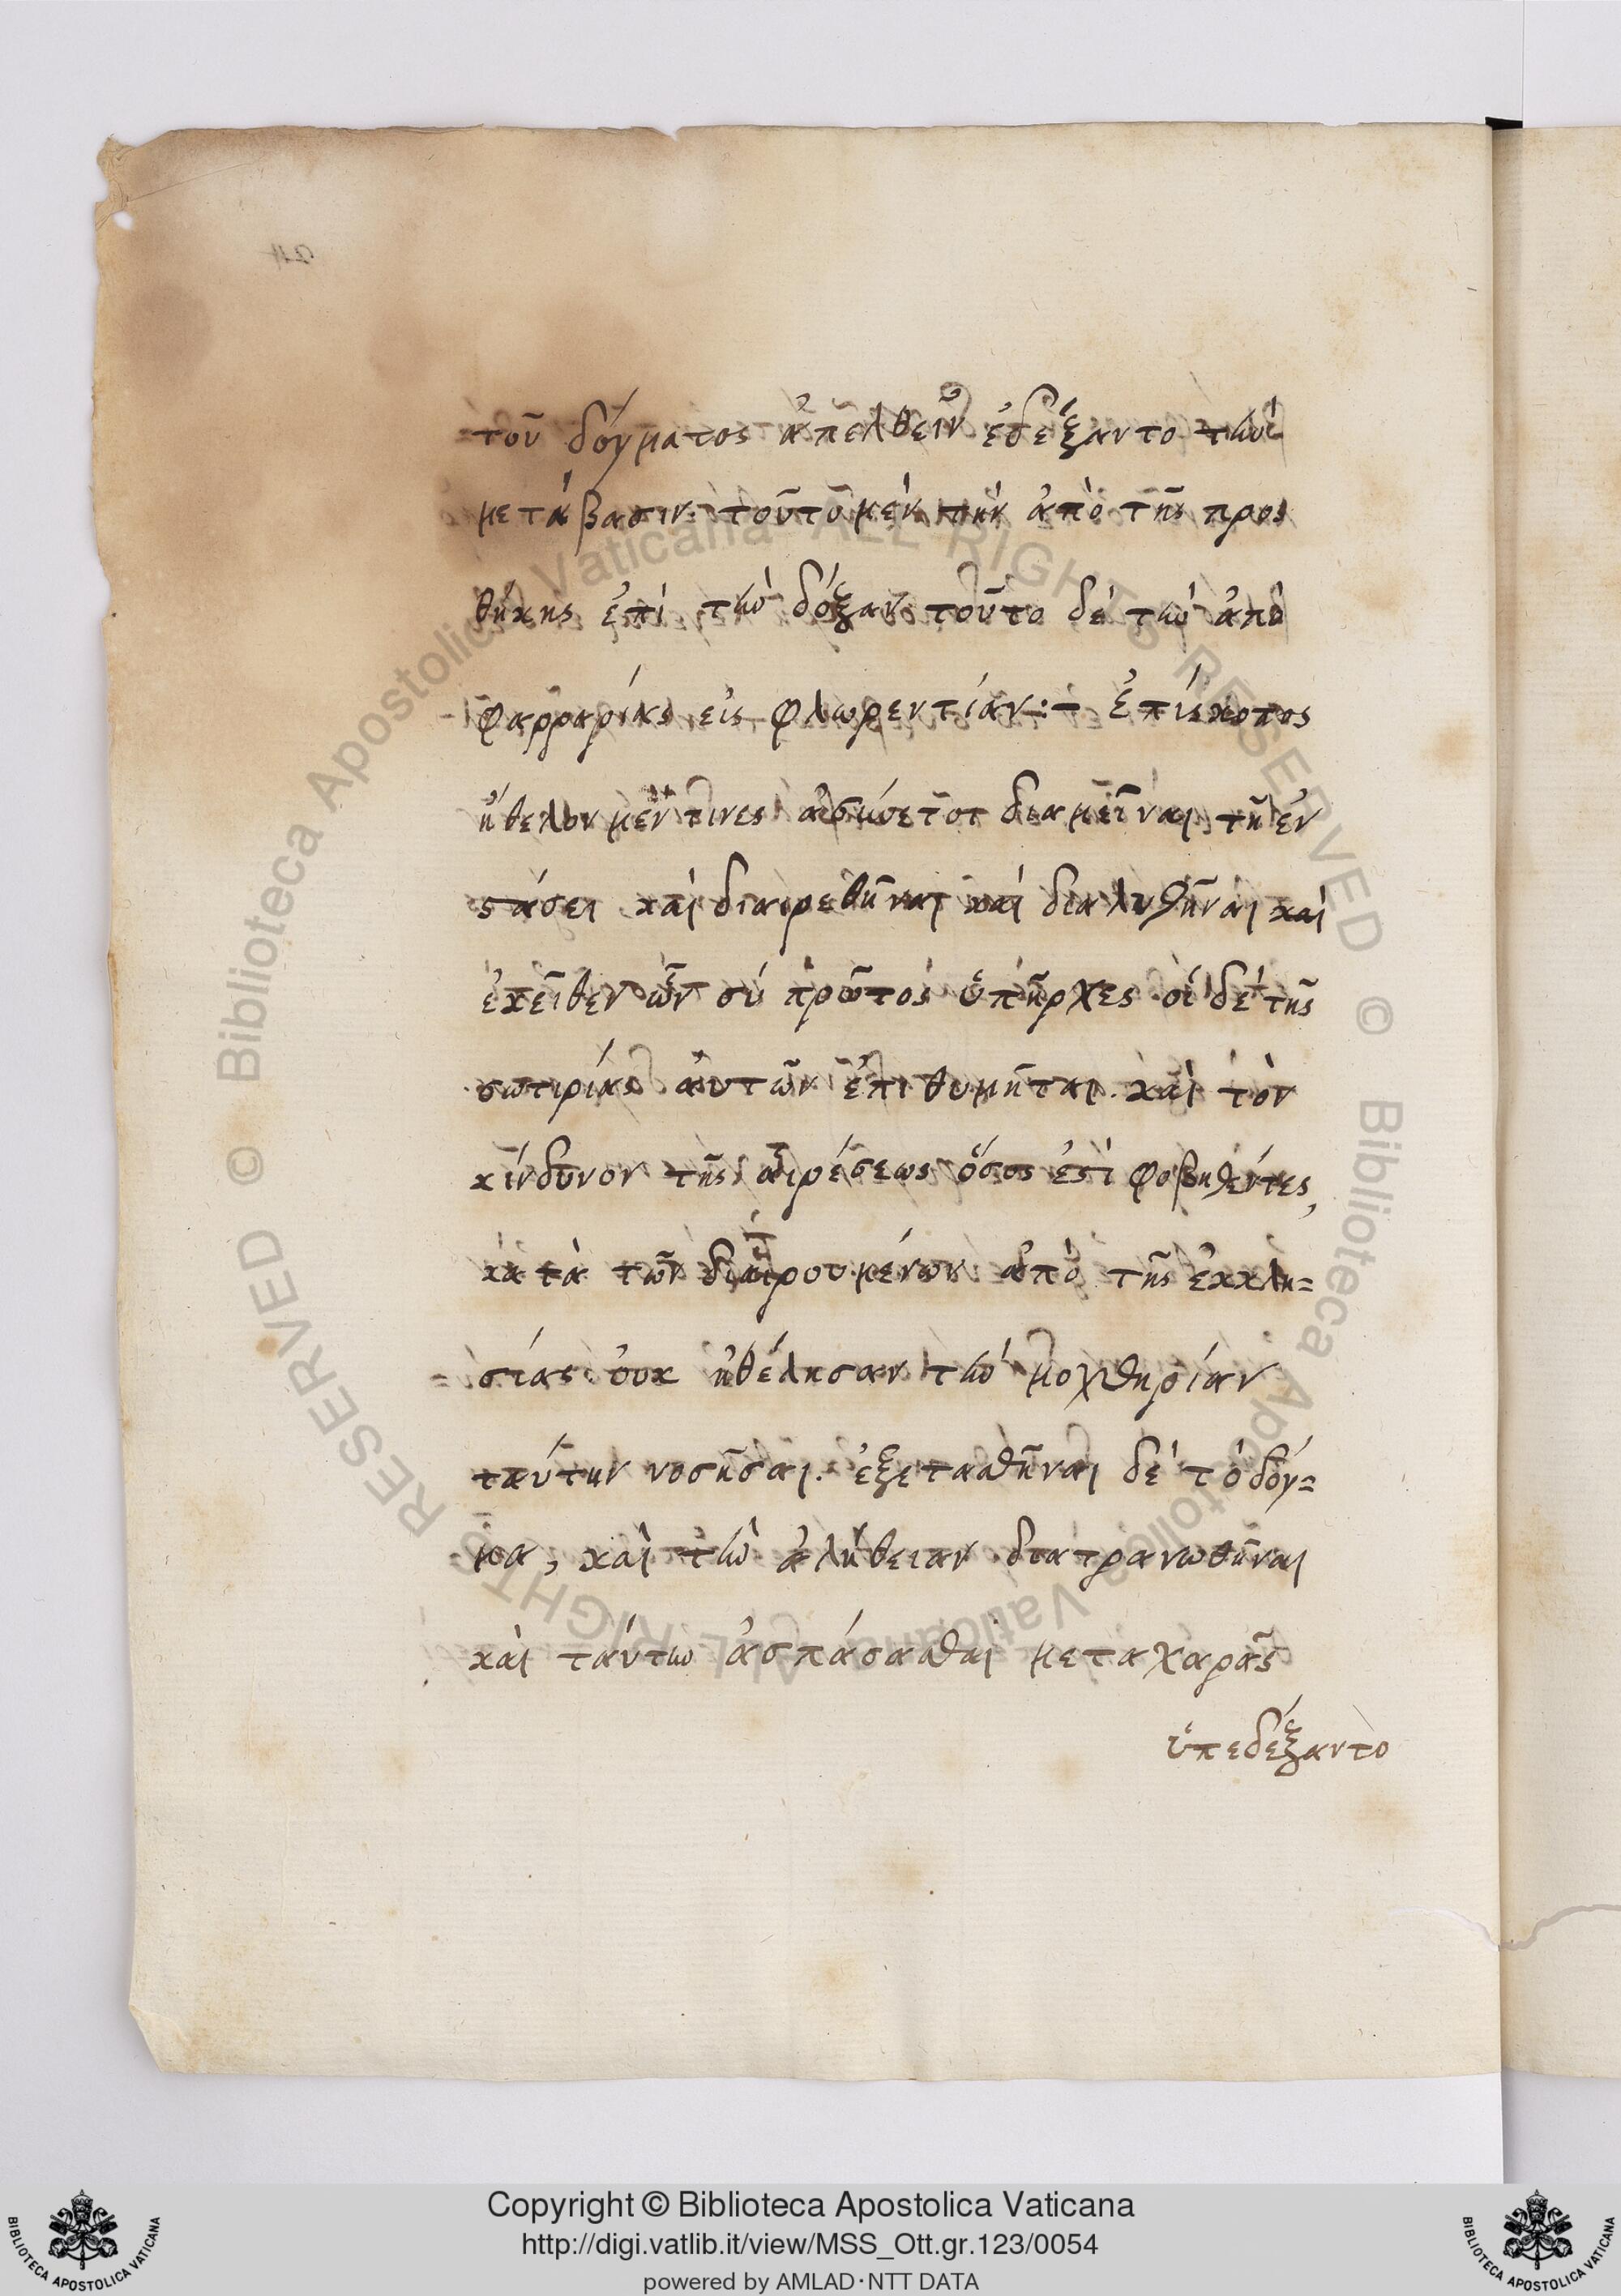 τοῦ δόγματος ἀπελθεῖν ἐδέξαντο τὴν
μετάβασιν· τοῦτο μὲν τὴν ἀπὸ τῆς προσ
θήκης ἐπὶ τὴν δόξαν· τοῦτο δὲ τὴν ἀπὸ
φαρραρίας εἰς φλωρεντίαν:- ἐπίσκοπος
ἤθελον μέν τινες διαμεῖναι τῇ ἐν
στάσει καὶ διαιρεθῆναι καὶ διαλυθῆναι καὶ
ἐκεῖθεν ὧν σὺ πρῶτος ὑπῆρχες οἱ δὲ τῆς
σωτιρίας αὐτῶν ἐπιθυμῆται. καὶ τὸν
κίνδυνον τῆς αἱρέσεως ὅσος ἐστὶ φοβηθέντες,
κατὰ τῶν διαιρουμένων ἀπὸ τῆς ἐκκλη=
=σίας οὐκ ἠθέλησαν τὴν μοχθηρίαν
ταύτην νοσῆσαι. ἐξετασθῆναι δὲ τὸ δόγ=
μα, καὶ τὴν ἀλήθειαν διατρανωθῆναι
καὶ ταύτην ἀσπάσασθαι μετα χαρᾶς
ὑπεδέξαντο
Copyright © Biblioteca Apostolica Vaticana
http://digi.vatlib.it/view/MSS_Ott.gr.123/0054
powered by AMLAD·NTT DATA
BIBLIOTECA APOSTOLICA VATICANA
BIBLIOTECA APOSTOLICA VATICANA
© Biblioteca Apostolica Vaticana ALL RIGHTS RESERVED © Biblioteca Apostolica Vaticana ALL RIGHTS RESERVED